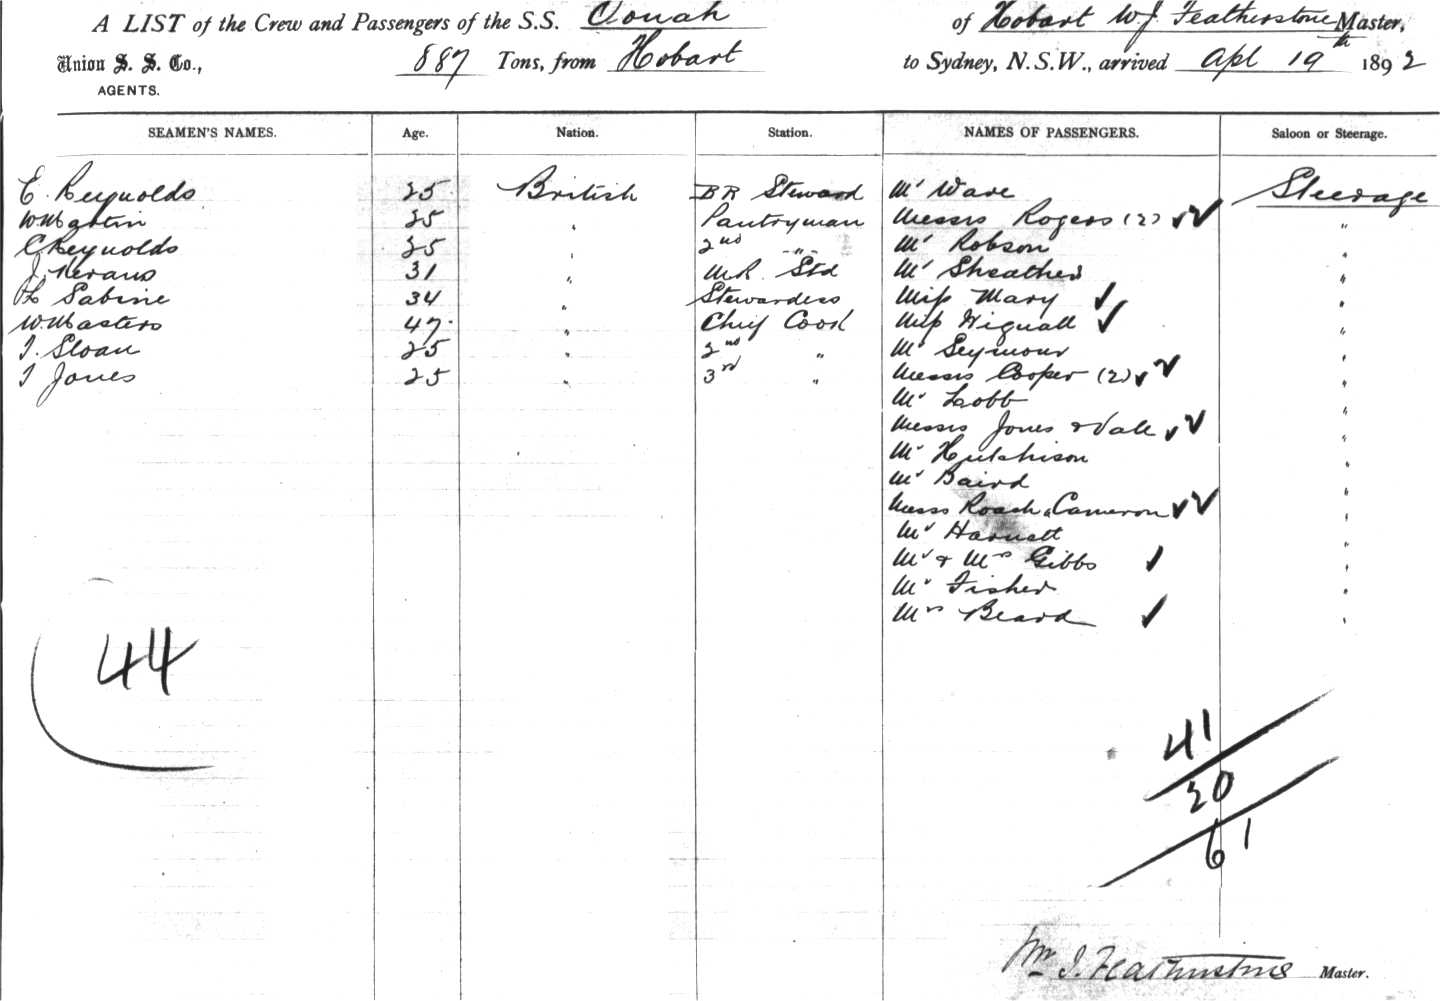 A LIST of the Crew and Passengers of the S.S. Oonah of Hobart W. J. Featherstone Master,
Union S. S. Co., 887 Tons, from Hobart to Sydney, N.S.W., arrived Apl 19th 1892
AGENTS.
SEAMEN'S NAMES. Age. Nation. Station. NAMES OF PASSENGERS. Saloon or Steerage.
E. Reynolds 25 British B R Steward Mr Ware Steerage
W. Martin 25 " Pantryman Messrs Rogers (2) "
C Reynolds 25 " 2nd -"- Mr Robson "
J. Kerans 31 " M.R. Std Mr Sheather "
Sabine 34 " Stewardess Miss Mary "
W. Masters 47 " Chief Cook Miss Wignall "
T. Sloan 25 " 2nd " Mr Seymour "
T Jones 25 " 3rd " Messrs Cooper (2) "
Mr Lobb "
Messrs Jones & Vale "
Mr Hutchison "
Mr Baird "
Messrs Roach & Cameron "
Mr Harnett "
Mr & Mrs Gibbs "
Mr Fisher "
Mrs Beard "
44
41
20
61
Wm J. Featherstone Master.